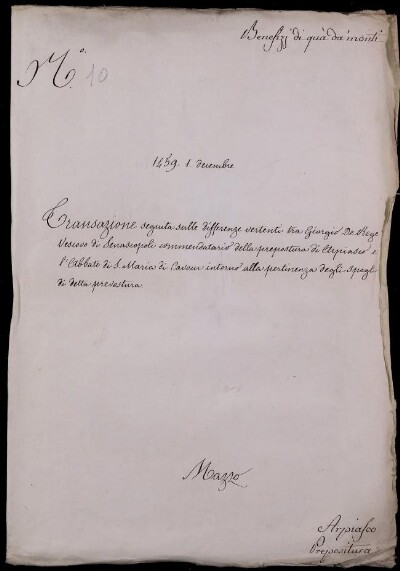 Benefizj di quà da' monti
N.° 10
1459. 1. decembre
Transazione seguita sulle differenze vertenti tra Giorgio De
Vescovo di commendatario della prepostura di Arpiasco e
l'Abbate di S. Maria di Cavour intorno alla pertinenza degli spogli
di detta prevostura.
Mazzo
Arpiasco
Prepositura